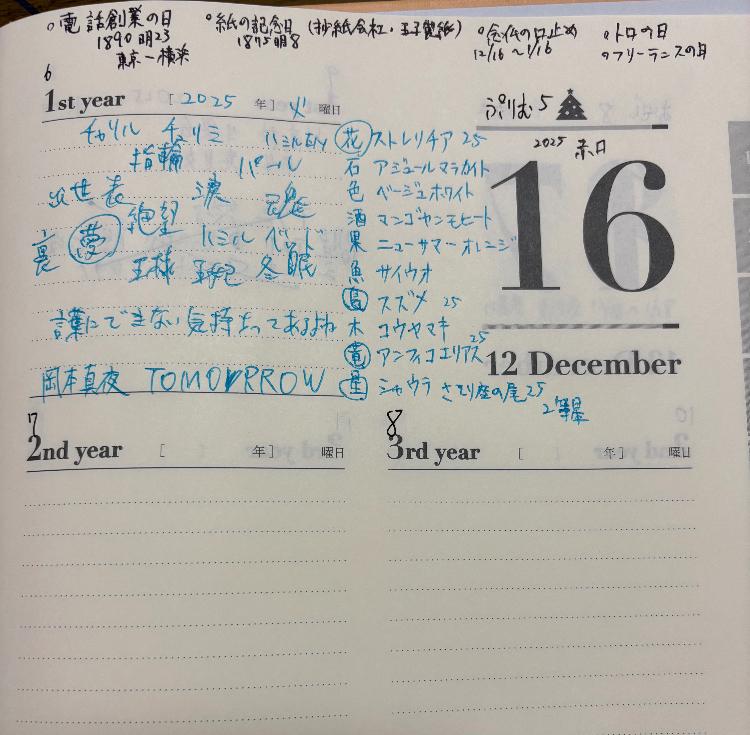 ○電話創業の日
1890 明23
東京ー横浜
○紙の記念日(抄紙会社・王子製紙)
1875 明8
○念仏の口止め
12/16 〜 1/16
○トロの日
○フリーランスの日
6
1st year [ 2025 年] 火曜日
チャリル チャリミ
指輪 パール
出世 表 涙 魂
裏 夢 絶望 ハミル ベッド
王様 王妃 冬眠
言葉にできない気持ちってあるよね
岡本真夜 TOMORROW
花 ストレリチア 25
石 アジュールマラカイト
色 ベージュホワイト
酒 マンゴヤンモヒート
果 ニューサマーオレンジ
魚 サイウオ
鳥 スズメ 25
木 コウヤマキ
竜 アンフィコエリアス 25
星 シャウラ さそり座の尾 25
2等星
ぷりむ5
2025 赤口
16
12 December
7
2nd year [ 年] 曜日
8
3rd year [ 年] 曜日